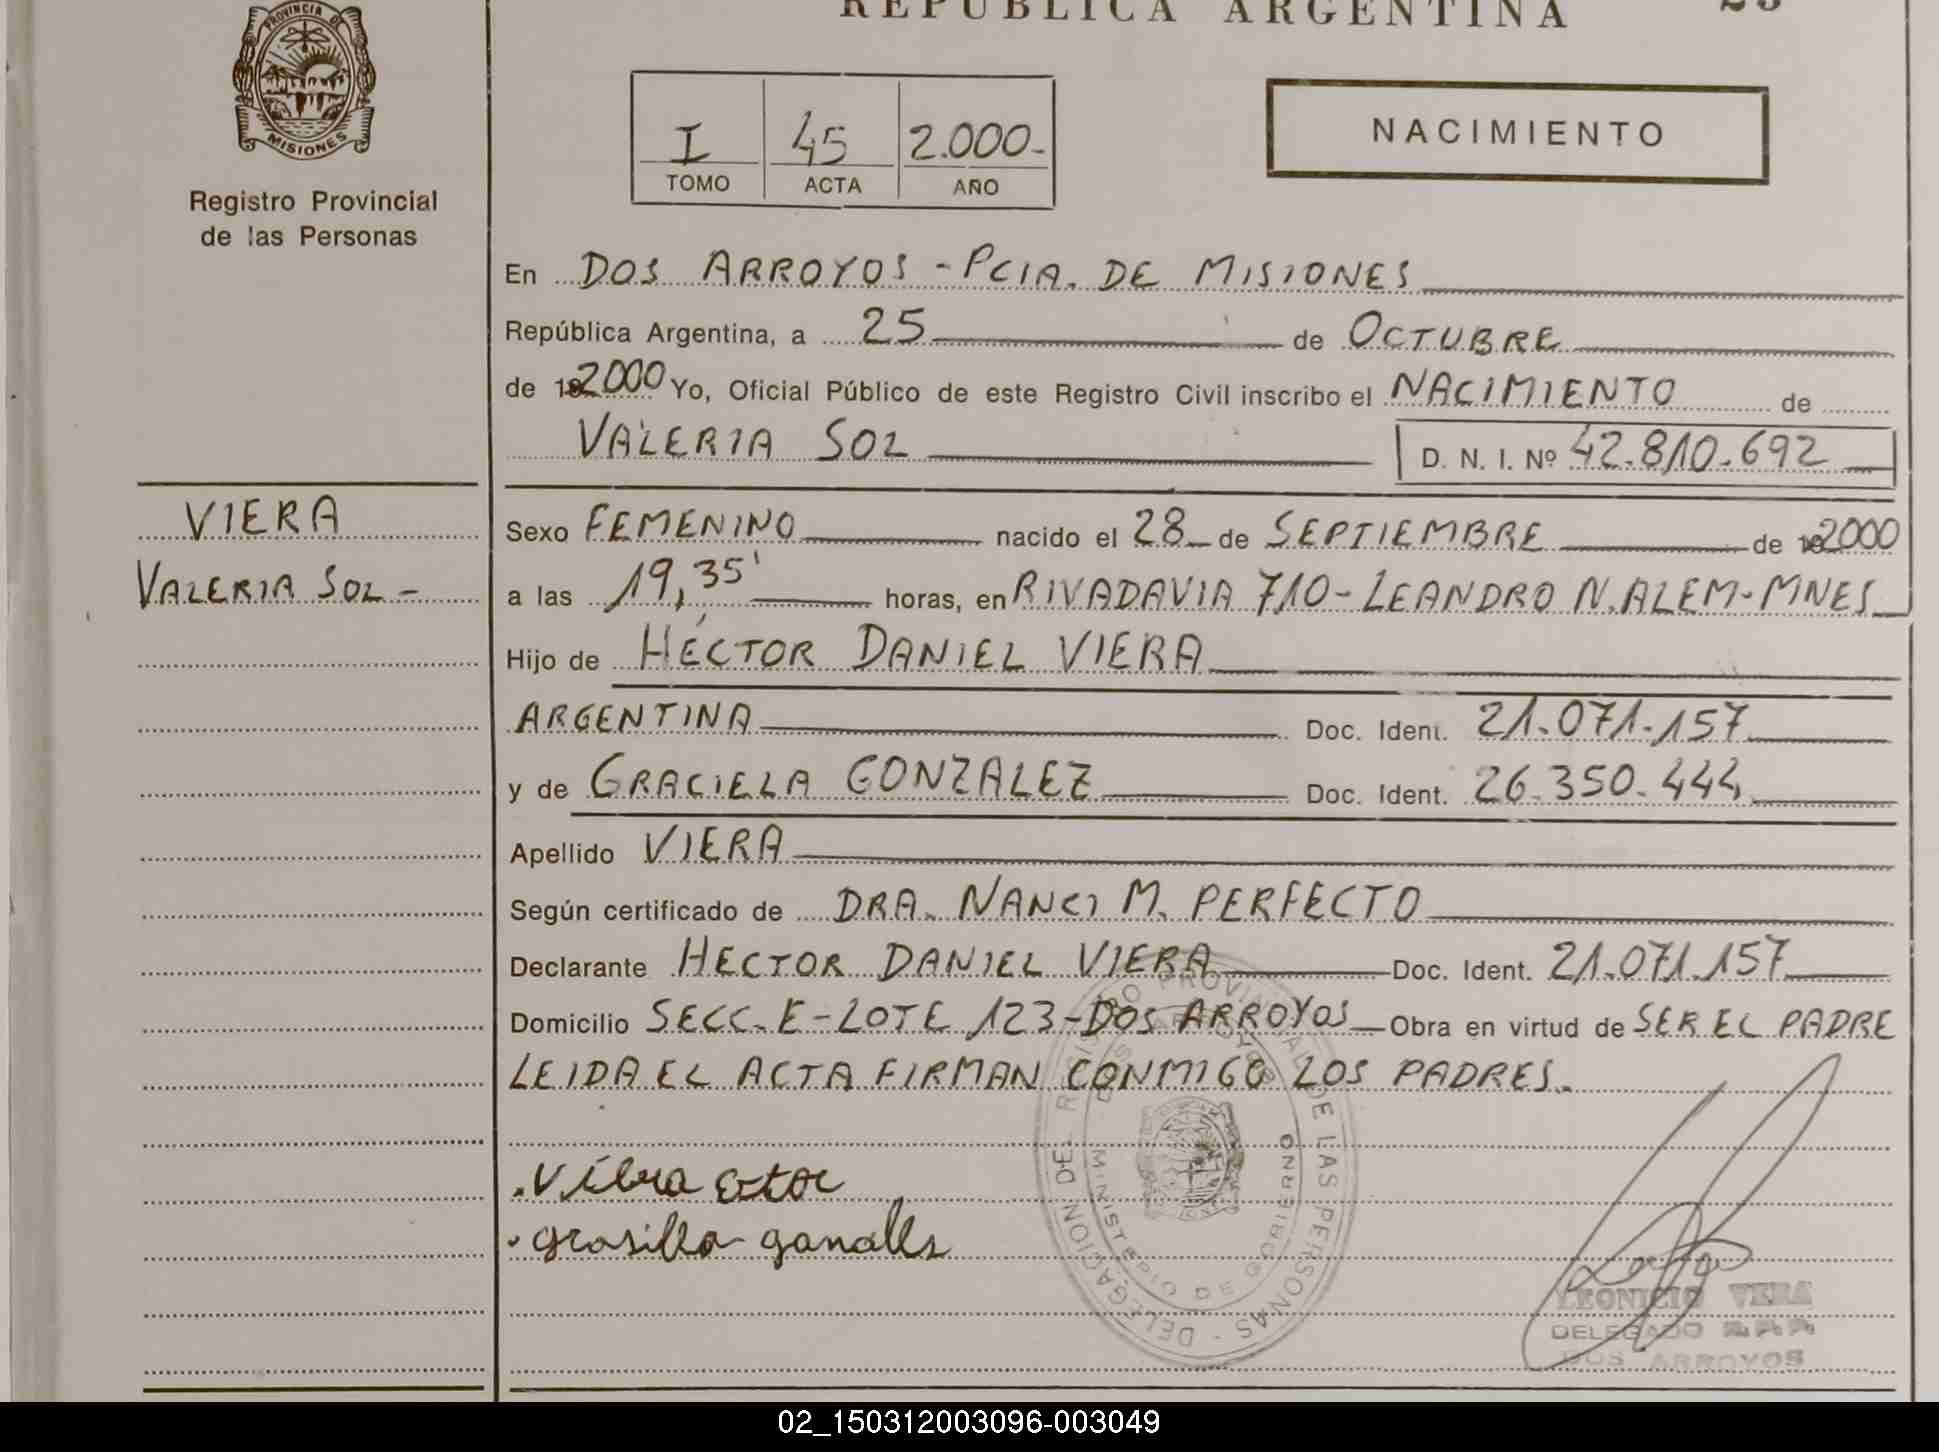 REPUBLICA ARGENTINA
PROVINCIA DE
MISIONES
Registro Provincial
de las Personas
I 45 2.000-
TOMO ACTA AÑO
NACIMIENTO
En DOS ARROYOS - PCIA. DE MISIONES
República Argentina, a 25 de OCTUBRE
de 2000 Yo, Oficial Público de este Registro Civil inscribo el NACIMIENTO de
VALERIA SOL D. N. I. Nº 42.810.692
VIERA
VALERIA SOL -
Sexo FEMENINO nacido el 28 de SEPTIEMBRE de 2000
a las 19,35' horas, en RIVADAVIA 710 - LEANDRO N. ALEM - MNES
Hijo de HÉCTOR DANIEL VIERA
ARGENTINA Doc. Ident. 21.071.157
y de GRACIELA GONZALEZ Doc. Ident. 26.350.444
Apellido VIERA
Según certificado de DRA. NANCI M. PERFECTO
Declarante HECTOR DANIEL VIERA Doc. Ident. 21.071.157
Domicilio SECC. E - LOTE 123 - DOS ARROYOS Obra en virtud de SER EL PADRE
LEIDA EL ACTA FIRMAN CONMIGO LOS PADRES.
DELEGACION DE REGISTRO PROVINCIAL DE LAS PERSONAS
DOS ARROYOS
MINISTERIO DE GOBIERNO
LEONICIO VERA
DELEGADO
DOS ARROYOS
02_150312003096-003049